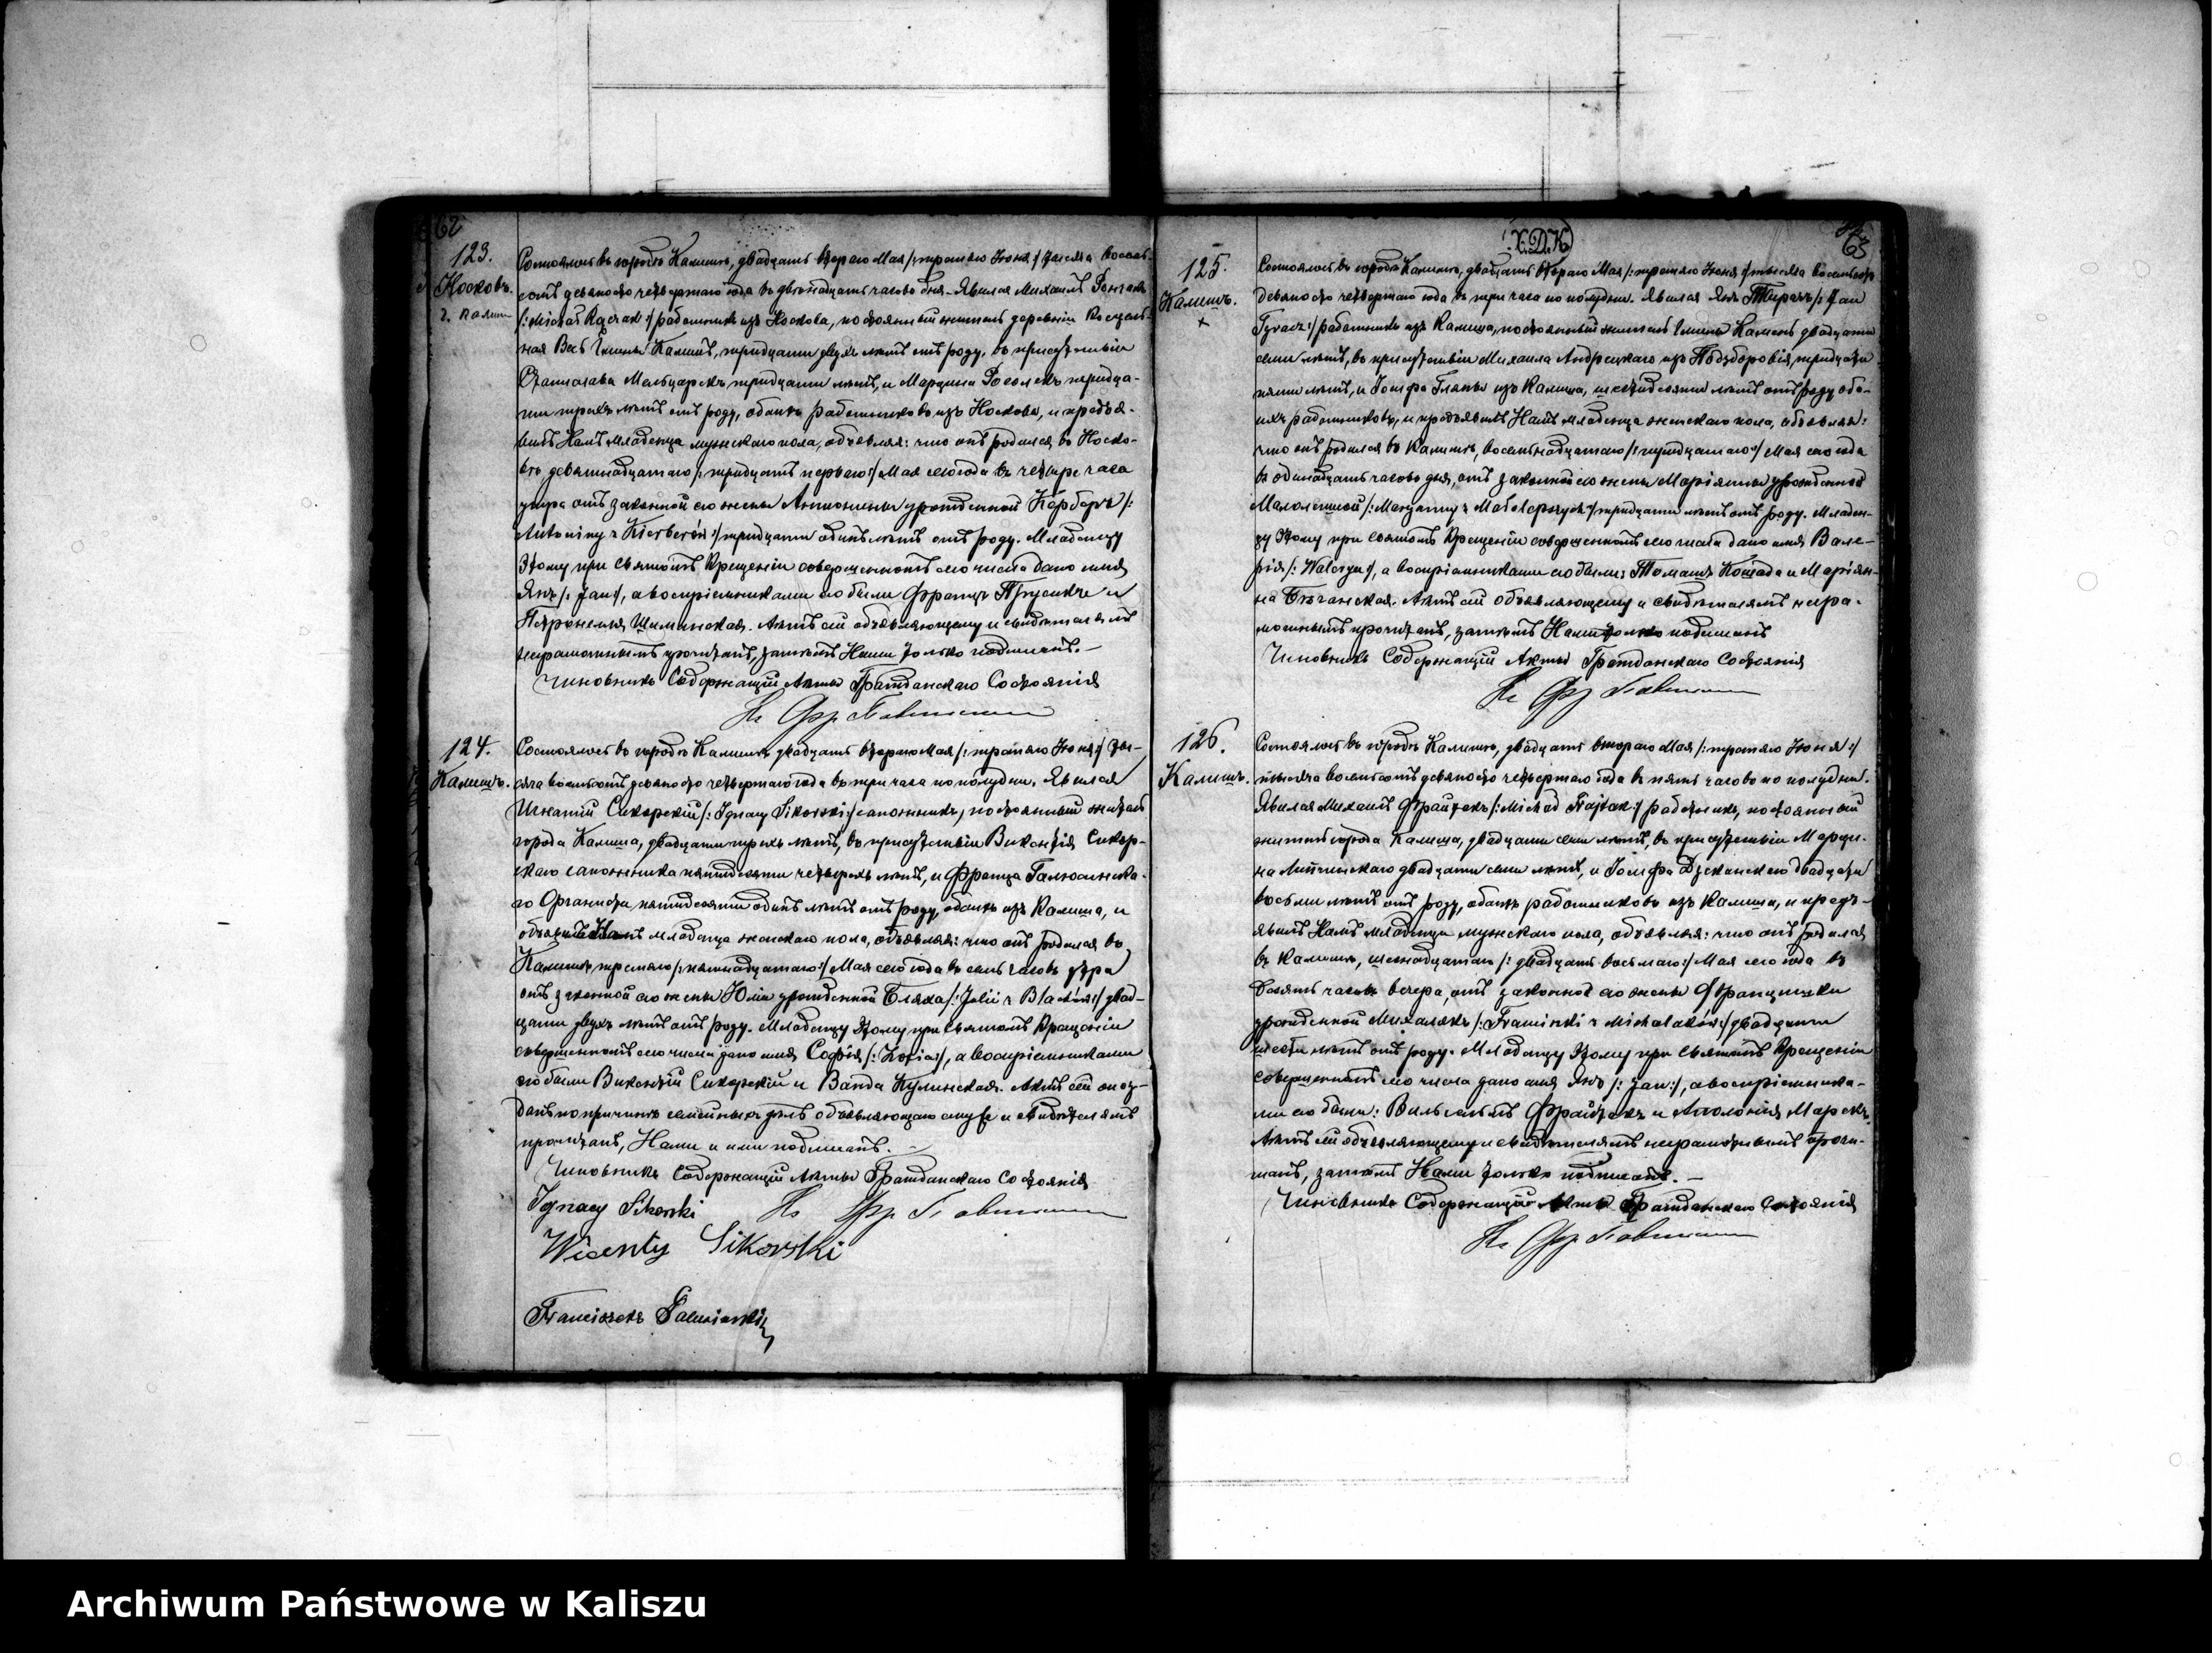 62
123.
Носковъ.
г. Калиш
Состоялось въ городѣ Калишѣ, двадцать втораго Мая /:третьяго Іюня:/ тысяча восемь-
сотъ девяносто четвертаго года въ двѣнадцать часовъ дня. Явился Михаилъ
/:Michał :/ работникъ изъ Носкова, постоянный житель деревни
ная Весь Гмины Калишъ, тридцати двухъ лѣтъ отъ роду, въ присутствіи
Станислава Мельцарекъ, тридцати лѣтъ, и Марцина Росолекъ тридца-
ти трехъ лѣтъ отъ роду, обоихъ работниковъ изъ Носкова, и предъя-
вилъ Намъ младенца мужескаго пола, объявляя: что онъ родился въ Носко-
вѣ, девятнадцатаго /:тридцать перваго:/ Мая сего года въ четыре часа
утра отъ законной его жены Антонины урожденной Керберъ /:
Antoniny z Kierberów:/ тридцати одинъ лѣтъ отъ роду. Младенцу
этому при Святомъ Крещеніи совершенномъ сего числа дано имя
Янъ /:Jan:/, а воспріемниками его были Францъ и
Петронелля Шиманская. Актъ сей объявляющему и свидѣтелямъ
неграмотнымъ прочитанъ, затѣмъ Нами только подписанъ.—
Чиновникъ Содержащій Акты Гражданскаго Состоянія
124.
Калишъ.
Состоялось въ городѣ Калишѣ, двадцать втораго Мая /:третьяго Іюня:/ ты-
сяча восемьсотъ девяносто четвертаго года въ три часа по полудни. Явился
Игнатій Сикорскій /:Ignacy Sikorski:/ сапожникъ, постоянный житель
города Калиша, двадцати трехъ лѣтъ, въ присутствіи Викентія Сикор-
скаго сапожника пятидесяти четырехъ лѣтъ, и Франца Галюсинска-
го Органиста пятидесяти одинъ лѣтъ отъ роду, обоихъ изъ Калиша, и
объявилъ Намъ младенца женскаго пола, объявляя: что онъ родился въ
Калишѣ третьяго /:пятнадцатаго:/ Мая сего года въ семь часовъ утра
отъ законной его жены Юліи урожденной Бляха /:Julii z Blachów:/ двад-
цати двухъ лѣтъ отъ роду. Младенцу этому при Святомъ Крещеніи
совершенномъ сего числа дано имя Софія /:Zofia:/, а воспріемниками
его были Викентій Сикорскій и Ванда Кулинская. Актъ сей опоз-
данъ по причинѣ семейныхъ дѣлъ объявляющаго ему и свидѣтелямъ
прочитанъ, Нами и ими подписанъ.—
Чиновникъ Содержащій Акты Гражданскаго Состоянія
Ignacy Sikorski
Wicenty Sikorski
Franciszek
Х.Д.К.
63
125.
Калишъ.
×
Состоялось въ городѣ Калишѣ, двадцать втораго Мая /:третьяго Іюня:/ тысяча восемьсотъ
девяносто четвертаго года въ три часа по полудни. Явился Янъ Тырачъ /:Jan
Tyracz:/ работникъ изъ Калиша, постоянный житель Гмины Камень двадцати
семи лѣтъ, въ присутствіи Михаила изъ тридцати
пяти лѣтъ, и Іосифа Глапы изъ Калиша, шестидесяти лѣтъ отъ роду обо-
ихъ работниковъ, и предъявилъ Намъ младенца женскаго пола, объявляя:
что онъ родился въ Калишѣ, восемнадцатаго /:тридцатаго:/ Мая сего года
въ одинадцать часовъ дня, отъ законной его жены Маріянны урожденной
/:Maryanny z :/ тридцати лѣтъ отъ роду. Младен-
цу этому при Святомъ Крещеніи совершенномъ сего числа дано имя Вале-
рія /:Waleryа:/, а воспріемниками его были: Томашъ и Маріян-
на . Актъ сей объявляющему и свидѣтелямъ негра-
мотнымъ прочитанъ, затѣмъ Нами только подписанъ
Чиновникъ Содержащій Акты Гражданскаго Состоянія
126.
Калишъ.
Состоялось въ городѣ Калишѣ, двадцать втораго Мая /:третьяго Іюня:/
тысяча восемьсотъ девяносто четвертаго года въ пять часовъ по полудни.
Явился Михаилъ Файтакъ /:Michał Fajtak:/ работникъ, постоянный
житель города Калиша, двадцати семи лѣтъ, въ присутствіи Марци-
на двадцати семи лѣтъ, и Іосифа двадцати
восьми лѣтъ отъ роду, обоихъ работниковъ изъ Калиша, и предъ-
явилъ Намъ младенца мужескаго пола, объявляя: что онъ родился
въ Калишѣ, шестнадцатаго /:двадцать восьмаго:/ Мая сего года въ
десять часовъ вечера, отъ законной его жены Францишки
урожденной Михалякъ /:Franciszki z Michalaków:/ двадцати
шести лѣтъ отъ роду. Младенцу этому при Святомъ Крещеніи
совершенномъ сего числа дано имя Янъ /:Jan:/, а воспріемника-
ми его были: Вильгельмъ и Аполонія Марекъ.
Актъ сей объявляющему и свидѣтелямъ неграмотнымъ прочи-
танъ, затѣмъ Нами только подписанъ.—
Чиновникъ Содержащій Акты Гражданскаго Состоянія
Archiwum Państwowe w Kaliszu